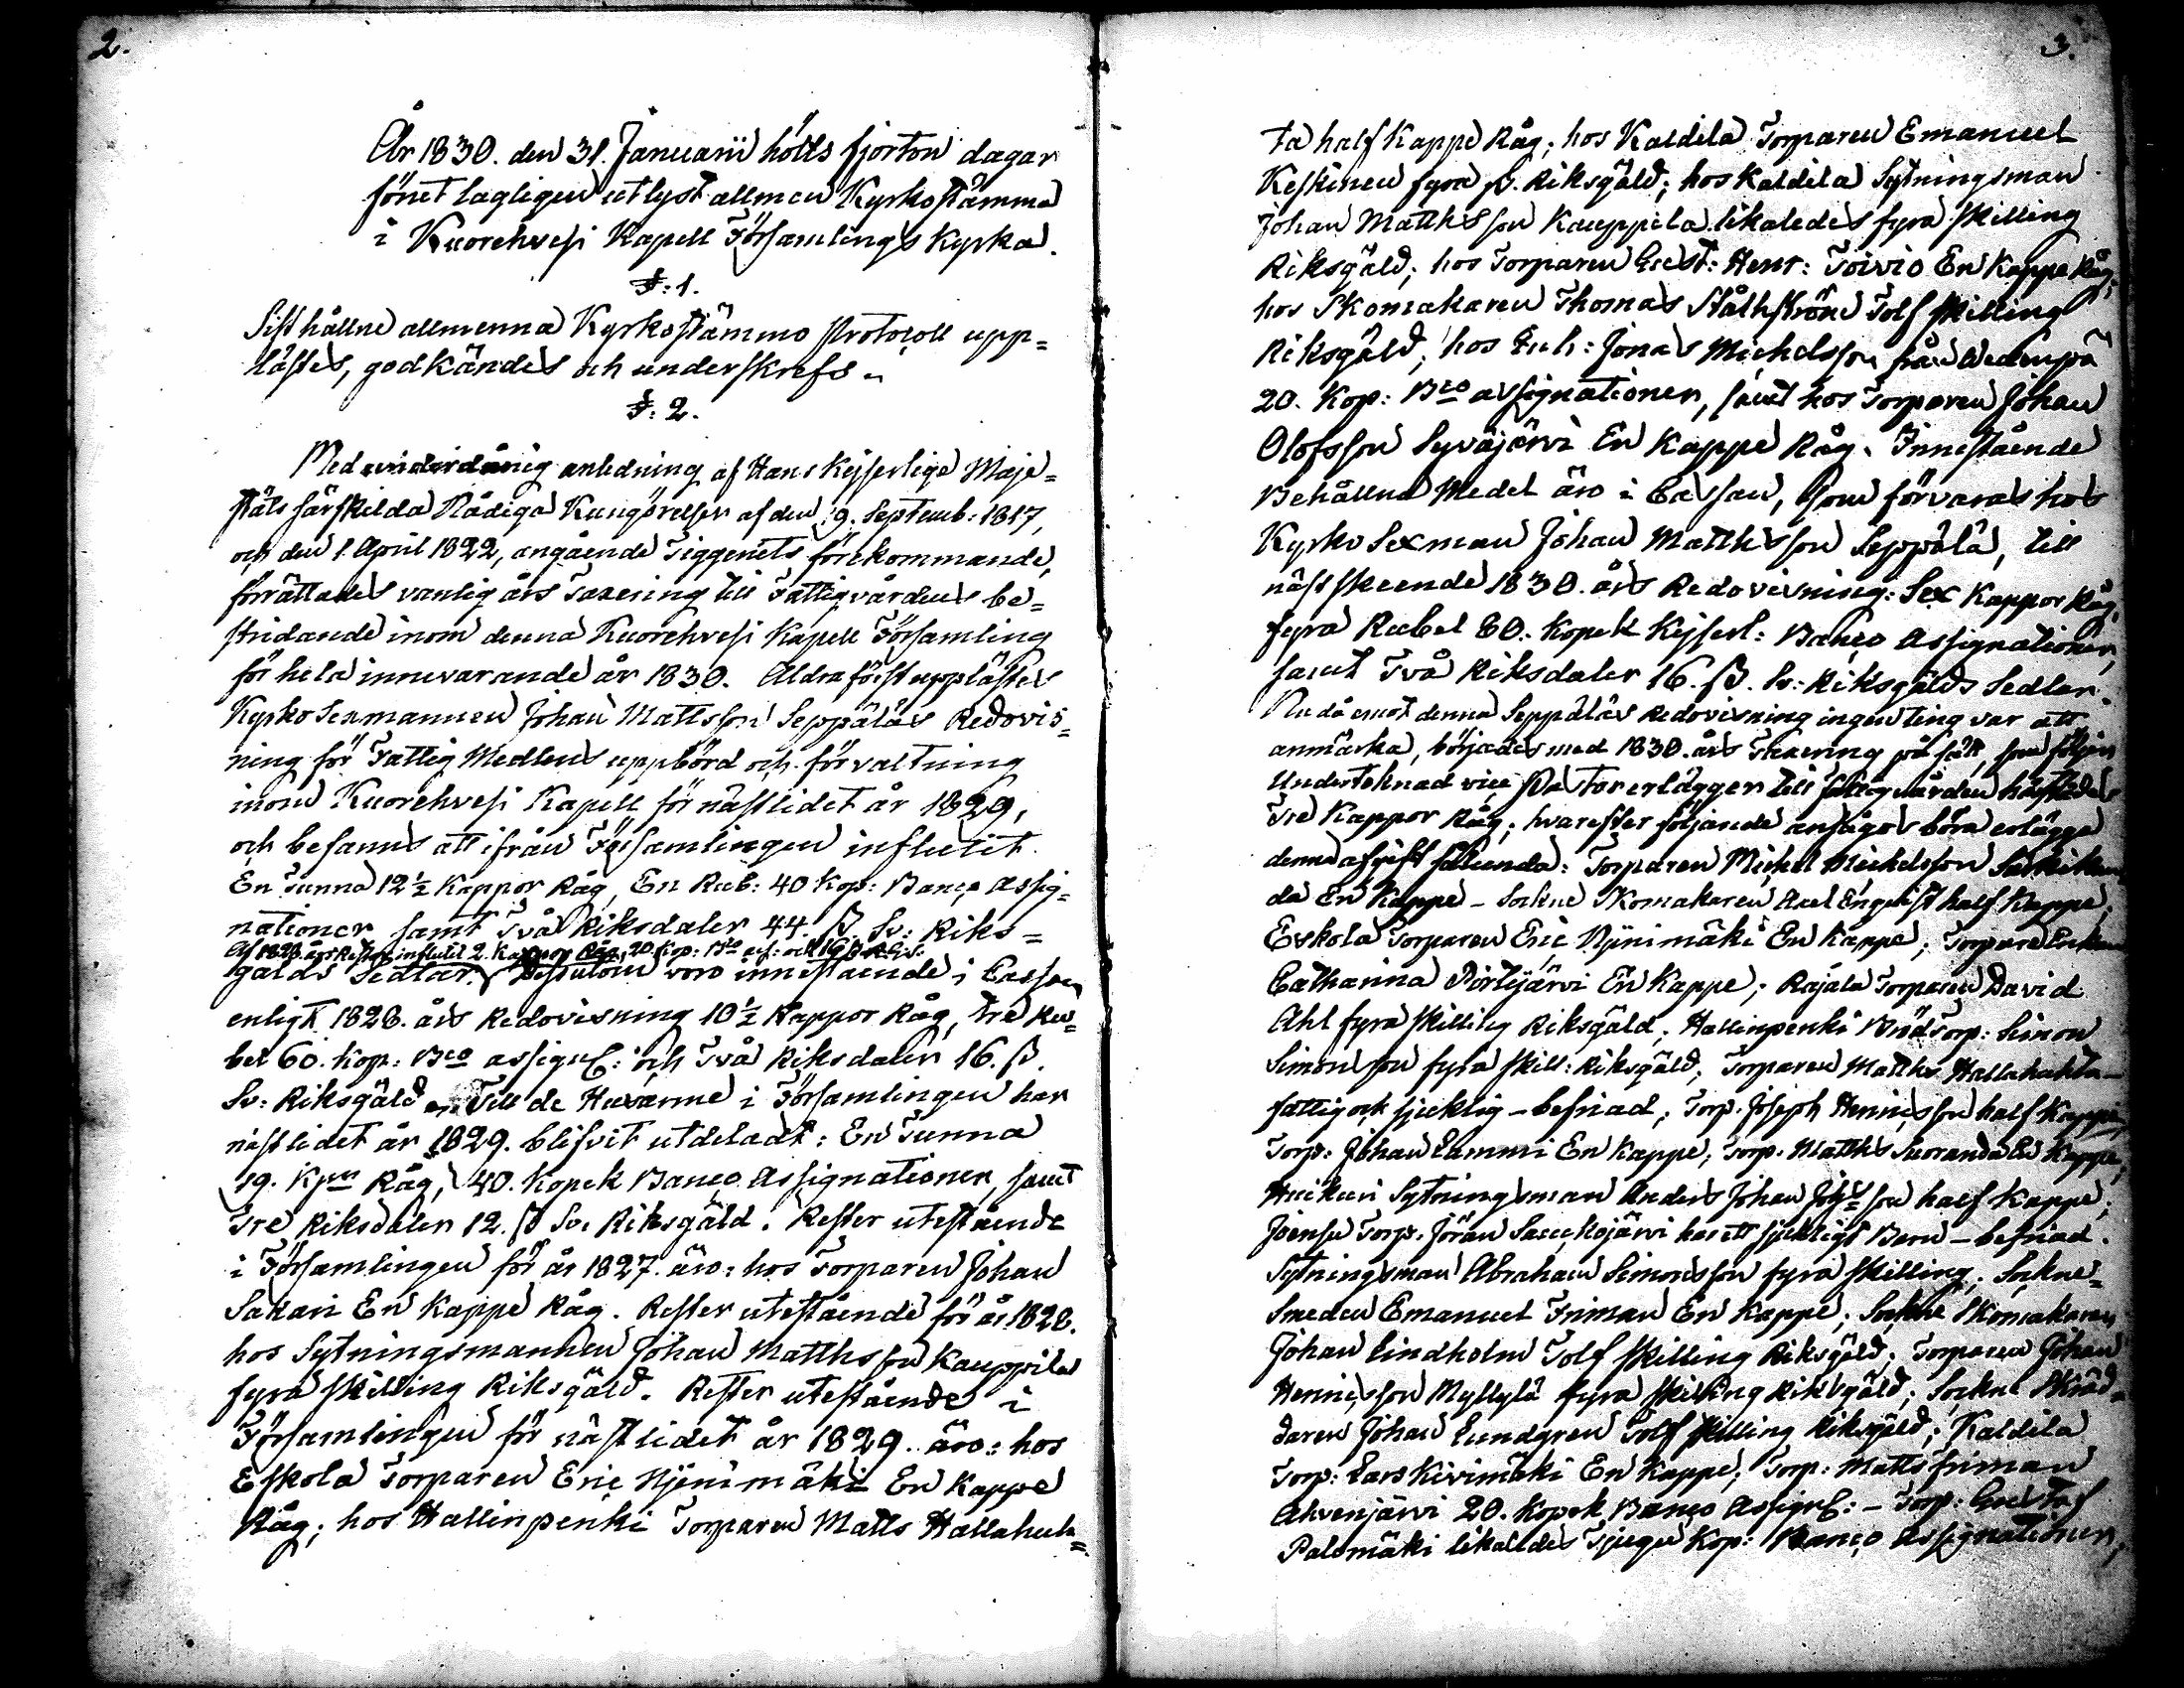 2.
År 1830. den 31. Januarii hölts fjorton dagar
förut lagligen utlyst allmen Kyrkostämma
i Kuorehvesi Kapell Församlings Kyrka.
§: 1.
Sist hållne allmenna Kyrkostämmo Protocoll upp=
lästes, godkändes och underskrefs.
§: 2.
Med underdånig anledning af Hans Kejserlige Maje=
stäts särskilda Nådiga Kungörelser af den 19. Septemb: 1817,
och den 1. April 1822, angående Tiggeriets förekommande,
förrättades vanlig års Taxering till Fattigvårdens be=
stridande inom denna Kuorehvesi Kapell Församling
för hela innevarande år 1830. Aldraförst upplästes
Kyrko Sexmannen Johan Mattsson Seppäläs Redovis=
ning för Fattig Medlens uppbörd och förvaltning
inom Kuorehvesi Kapell för nästlidet år 1829,
och befanns att ifrån Församlingen influtit
En Tunna 12½ Kappor Råg, En Rub: 40 Kop: Banco Assig=
nationer samt Två Riksdaler 44. ß. Sv: Riks=
Af 1828 års Rester influtit 2. Kappor Råg, 20 Kop: Bco
gälds Sedlar. Dessutom voro innestående i Cassan
enligt 1828. års Redovisning 10½ Kappor Råg, Tre Ru=
bel 60. Kop: Bco assign: och Två Riksdaler 16. ß.
Sv: Riksgäld. Till de Husarme i Församlingen har
nästlidet år 1829. blifvit utdeladt: En Tunna
19. Kpr Råg, 40. Kopek Banco Assignationer, samt
Tre Riksdaler 12. ß Sv. Riksgäld. Rester utestående
i Församlingen för år 1827. äro: hos Torparen Johan
Sakari En Kappe Råg. Rester utestående för år 1828.
hos Sytningsmannen Johan Matthsson Kauppila
fyra skilling Riksgäld. Rester utestående i
Församlingen för nästlidet år 1829. äro: hos
Eskola Torparen Eric Nynimäki En Kappe
Råg; hos Hallinpenki Torparen Matts Hallahuh=
3.
ta half Kappe Råg; hos Kaldila Torparen Emanuel
Keskinen fyra ß. Riksgäld; hos Kaldila Sytningsman
Johan Matthsson Kauppila likaledes fyra skilling
Riksgäld; hos Torparen Gust: Henr: Toivio En Kappe Råg;
hos Skomakaren Thomas Stålhström Tolf skilling
Riksgäld; hos Enh: Jonas Michelsson från
20. Kop: Bco assignationer, samt hos Torparen Johan
Olofsson Syväjärvi En Kappe Råg. Innestående
Behållna Medel äro i Cassan, som förvaras hos
Kyrko Sexman Johan Matthsson Seppälä, till
näst skeende 1830. års Redovisning: Sex Kappor Råg,
fyra Rubel 80. Kopek Kejserl: Banco Assignationer,
samt Två Riksdaler 16. ß. Sv: Riksgälds Sedlar.
Nu då emot denna Seppäläs Redovisning ingenting var att
anmärka, börjades med 1830. års Taxering på sätt, som följer:
Undertecknad vice Pastor erlägger till fattigvården
Tre Kappor Råg; hvarefter följande ansågos böra erlägga
denna afgift sålunda: Torparen Michel Michelsson
da En Kappe – Sockne Skomakaren Axel Engqvist half Kappe;
Eskola Torparen Eric Nynimäki En Kappe; Torpare Enkan
Catharina Pörtyjärvi En Kappe; Rajala Torparen David
Ahl fyra skilling Riksgäld; Hallinpenki Torp: Simon
Simonsson fyra skill: Riksgäld; Torparen Matths Hallahuhta –
fattig och sjuklig – befriad; Torp. Joseph Henricsson half Kappe;
Torp: Johan Lammi En Kappe; Torp. Matths Suoranda En Kappe;
Huikuri Sytningsman Anders Johan Johsson half Kappe;
Joensu Torp. Jöran har ett sjukligt Barn – befriad.
Sytningsman Abraham Simonsson fyra skilling; Sockne=
Smeden Emanuel Friman En Kappe; Sockne Skomakaren
Johan Lindholm Tolf skilling Riksgäld; Torparen Johan
Henricsson Myllylä fyra skilling Riksgäld; Sockne Skräd=
daren Johan Lundgren Tolf skilling Riksgäld; Kaldila
Torp: Lars Kivimäki En Kappe; Torp: Matts Friman
Ahvenjärvi 20. Kopek Banco Assign: – Torp: Gustaf
Palomäki likaledes Tjugu Kop: Banco Assignationer,